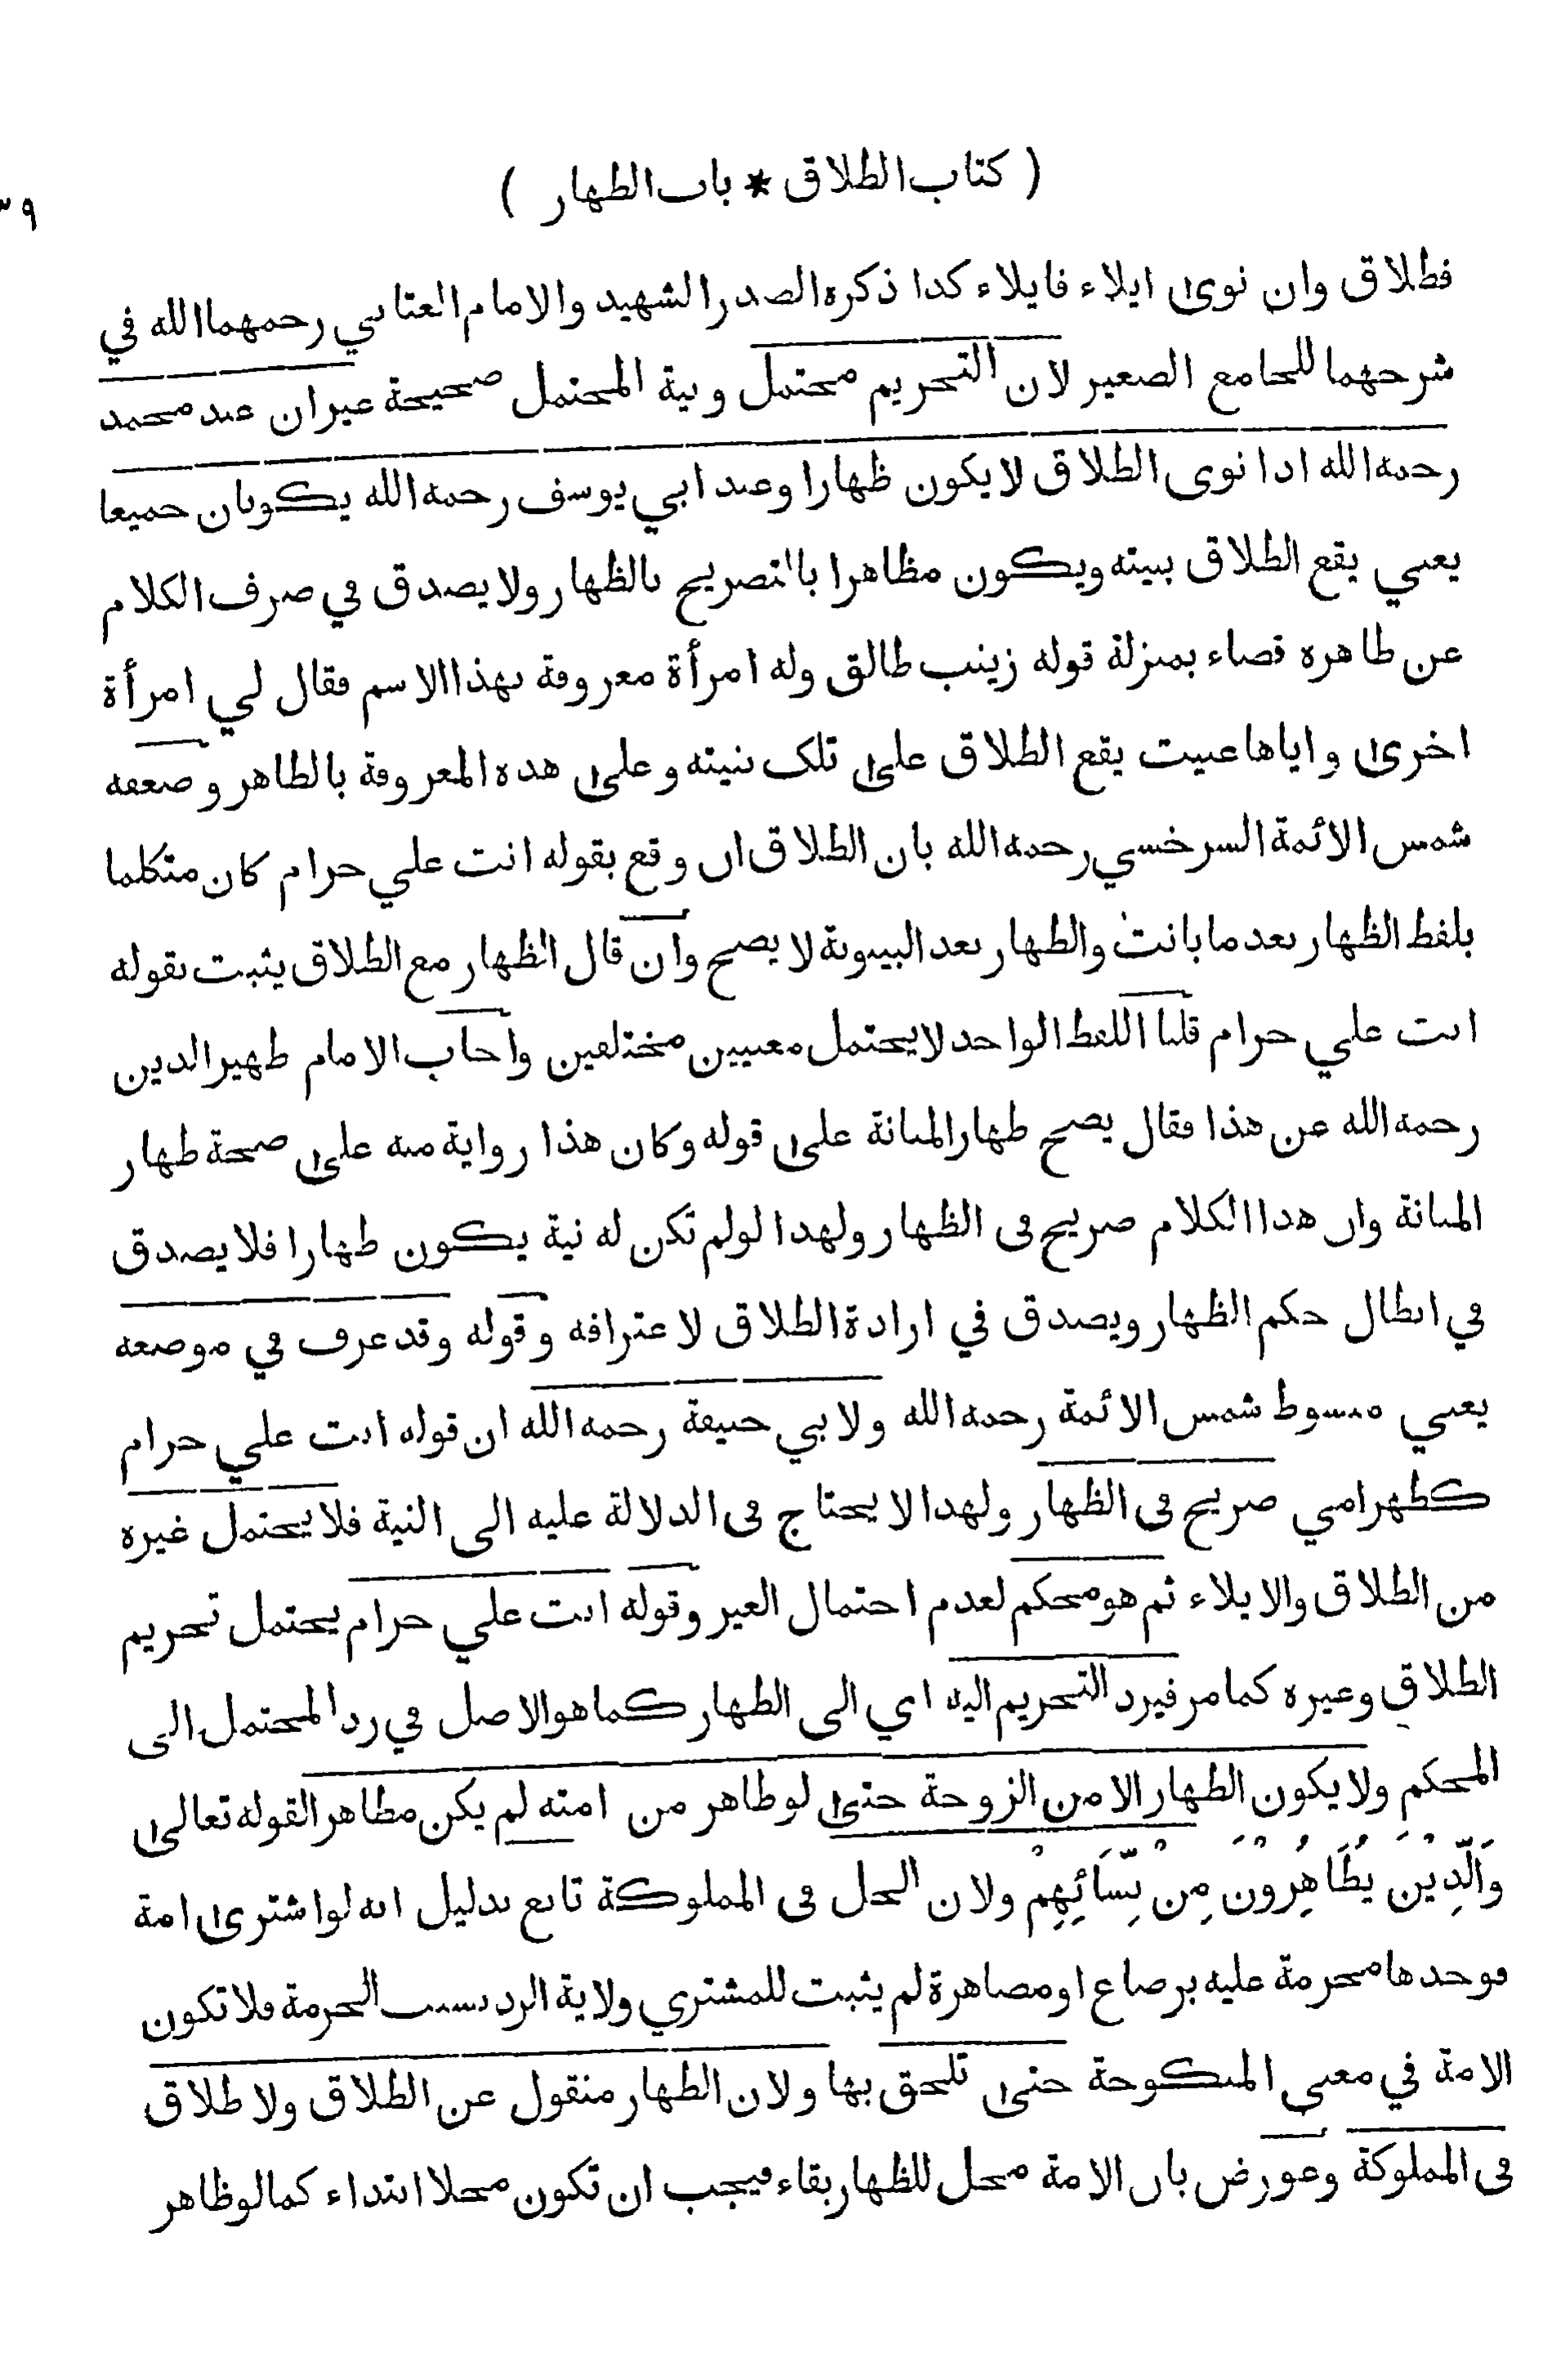 ( كتاب الطلاق * باب الظهار )
٣٩
فطلاق وان نوى ايلاء فايلاء كذا ذكره الصدر الشهيد والامام العتابي رحمهما الله في
شرحهما للجامع الصغير لان التحريم محتمل ونية المحتمل صحيحة غير ان عند محمد
رحمه الله اذا نوى الطلاق لا يكون ظهارا وعند ابي يوسف رحمه الله يكونان جميعا
يعني يقع الطلاق بنيته ويكون مظاهرا بالتصريح بالظهار ولا يصدق في صرف الكلام
عن ظاهره قضاء بمنزلة قوله زينب طالق وله امرأة معروفة بهذا الاسم فقال لي امرأة
اخرى واياها عنيت يقع الطلاق على تلك بنيته وعلى هذه المعروفة بالظاهر وضعفه
شمس الائمة السرخسي رحمه الله بان الطلاق ان وقع بقوله انت علي حرام كان متكلما
بلفظ الظهار بعد ما بانت والظهار بعد البينونة لا يصح وان قال الظهار مع الطلاق يثبت بقوله
انت علي حرام قلنا اللفظ الواحد لا يحتمل معنيين مختلفين واجاب الامام ظهير الدين
رحمه الله عن هذا فقال يصح ظهار المبانة على قوله وكان هذا رواية منه على صحة ظهار
المبانة وان هذا الكلام صريح في الظهار ولهذا لو لم تكن له نية يكون ظهارا فلا يصدق
في ابطال حكم الظهار ويصدق في ارادة الطلاق لاعترافه وقوله وقد عرف في موضعه
يعني مبسوط شمس الائمة رحمه الله ولابي حنيفة رحمه الله ان قوله انت علي حرام
كظهر امي صريح في الظهار ولهذا لا يحتاج في الدلالة عليه الى النية فلا يحتمل غيره
من الطلاق والايلاء ثم هو محكم لعدم احتمال الغير وقوله انت علي حرام يحتمل تحريم
الطلاق وغيره كما مر فيرد التحريم اليه اي الى الظهار كما هو الاصل في رد المحتمل الى
المحكم ولا يكون الظهار الا من الزوجة حتى لو ظاهر من امته لم يكن مظاهرا لقوله تعالى
وَالَّذِينَ يُظَاهِرُونَ مِنْ نِّسَائِهِمْ ولان الحل في المملوكة تابع بدليل انه لو اشترى امة
فوجدها محرمة عليه برضاع او مصاهرة لم يثبت للمشتري ولاية الرد بسبب الحرمة فلا تكون
الامة في معنى المنكوحة حتى تلحق بها ولان الظهار منقول عن الطلاق ولا طلاق
في المملوكة وعورض بان الامة محل للظهار بقاء فيجب ان تكون محلا ابتداء كما لو ظاهر